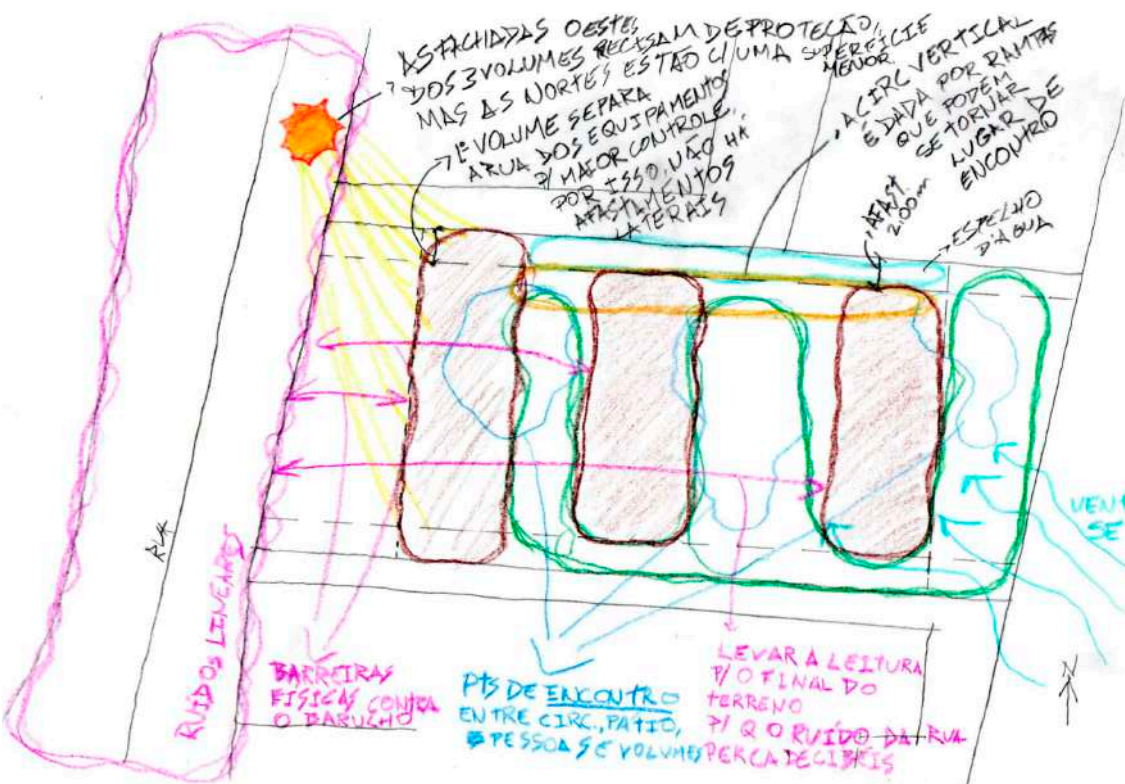 AS FACHADAS OESTES
DOS 3 VOLUMES RECISAM DE PROTEÇÃO,
MAS AS NORTES ESTÃO C/ UMA SUPERFÍCIE
MENOR.
1º VOLUME SEPARA
A RUA DOS EQUIPAMENTOS
P/ MAIOR CONTROLE,
POR ISSO, NÃO HÁ
AFASTAMENTOS
LATERAIS
A CIRC VERTICAL
É DADA POR RAMPAS
QUE PODEM
SE TORNAR
LUGAR DE
ENCONTRO
AFAST.
2.00m
ESPELHO
D'ÁGUA
RUA
RUIDOS LINEARES
VENT
SE
N
BARREIRAS
FÍSICAS CONTRA
O BARUCHO
PTS DE ENCONTRO
ENTRE CIRC., PATIO,
PESSOAS E VOLUMES
LEVAR A LEITURA
P/ O FINAL DO
TERRENO
P/ Q O RUÍDO DA RUA
PERCA DECIBÉIS